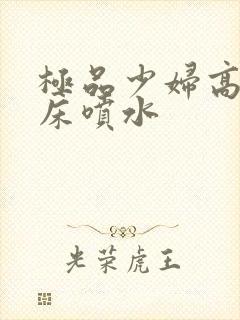 極品少婦高
床噴水
光荣虎王